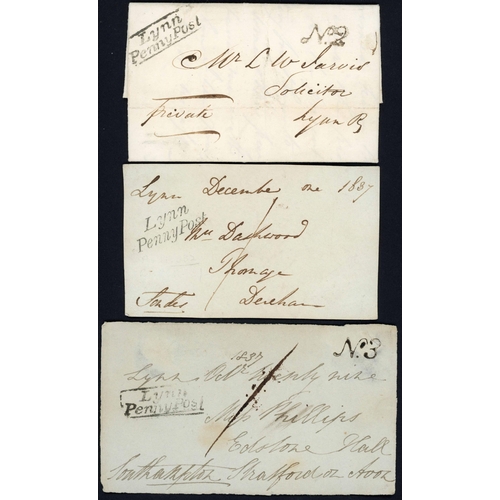 Lynn
Penny Post
No. 2
Mr. L W Jarvis
Solicitor
private
Lynn
Lynn December one 1837
Lynn
Penny Post
Dashwood
Thornage
Dereham
No. 3
1837
Lynn Octr. twenty nine
Lynn
Penny Post
Miss Phillips
Edstone Hall
Southampton Stratford on Avon